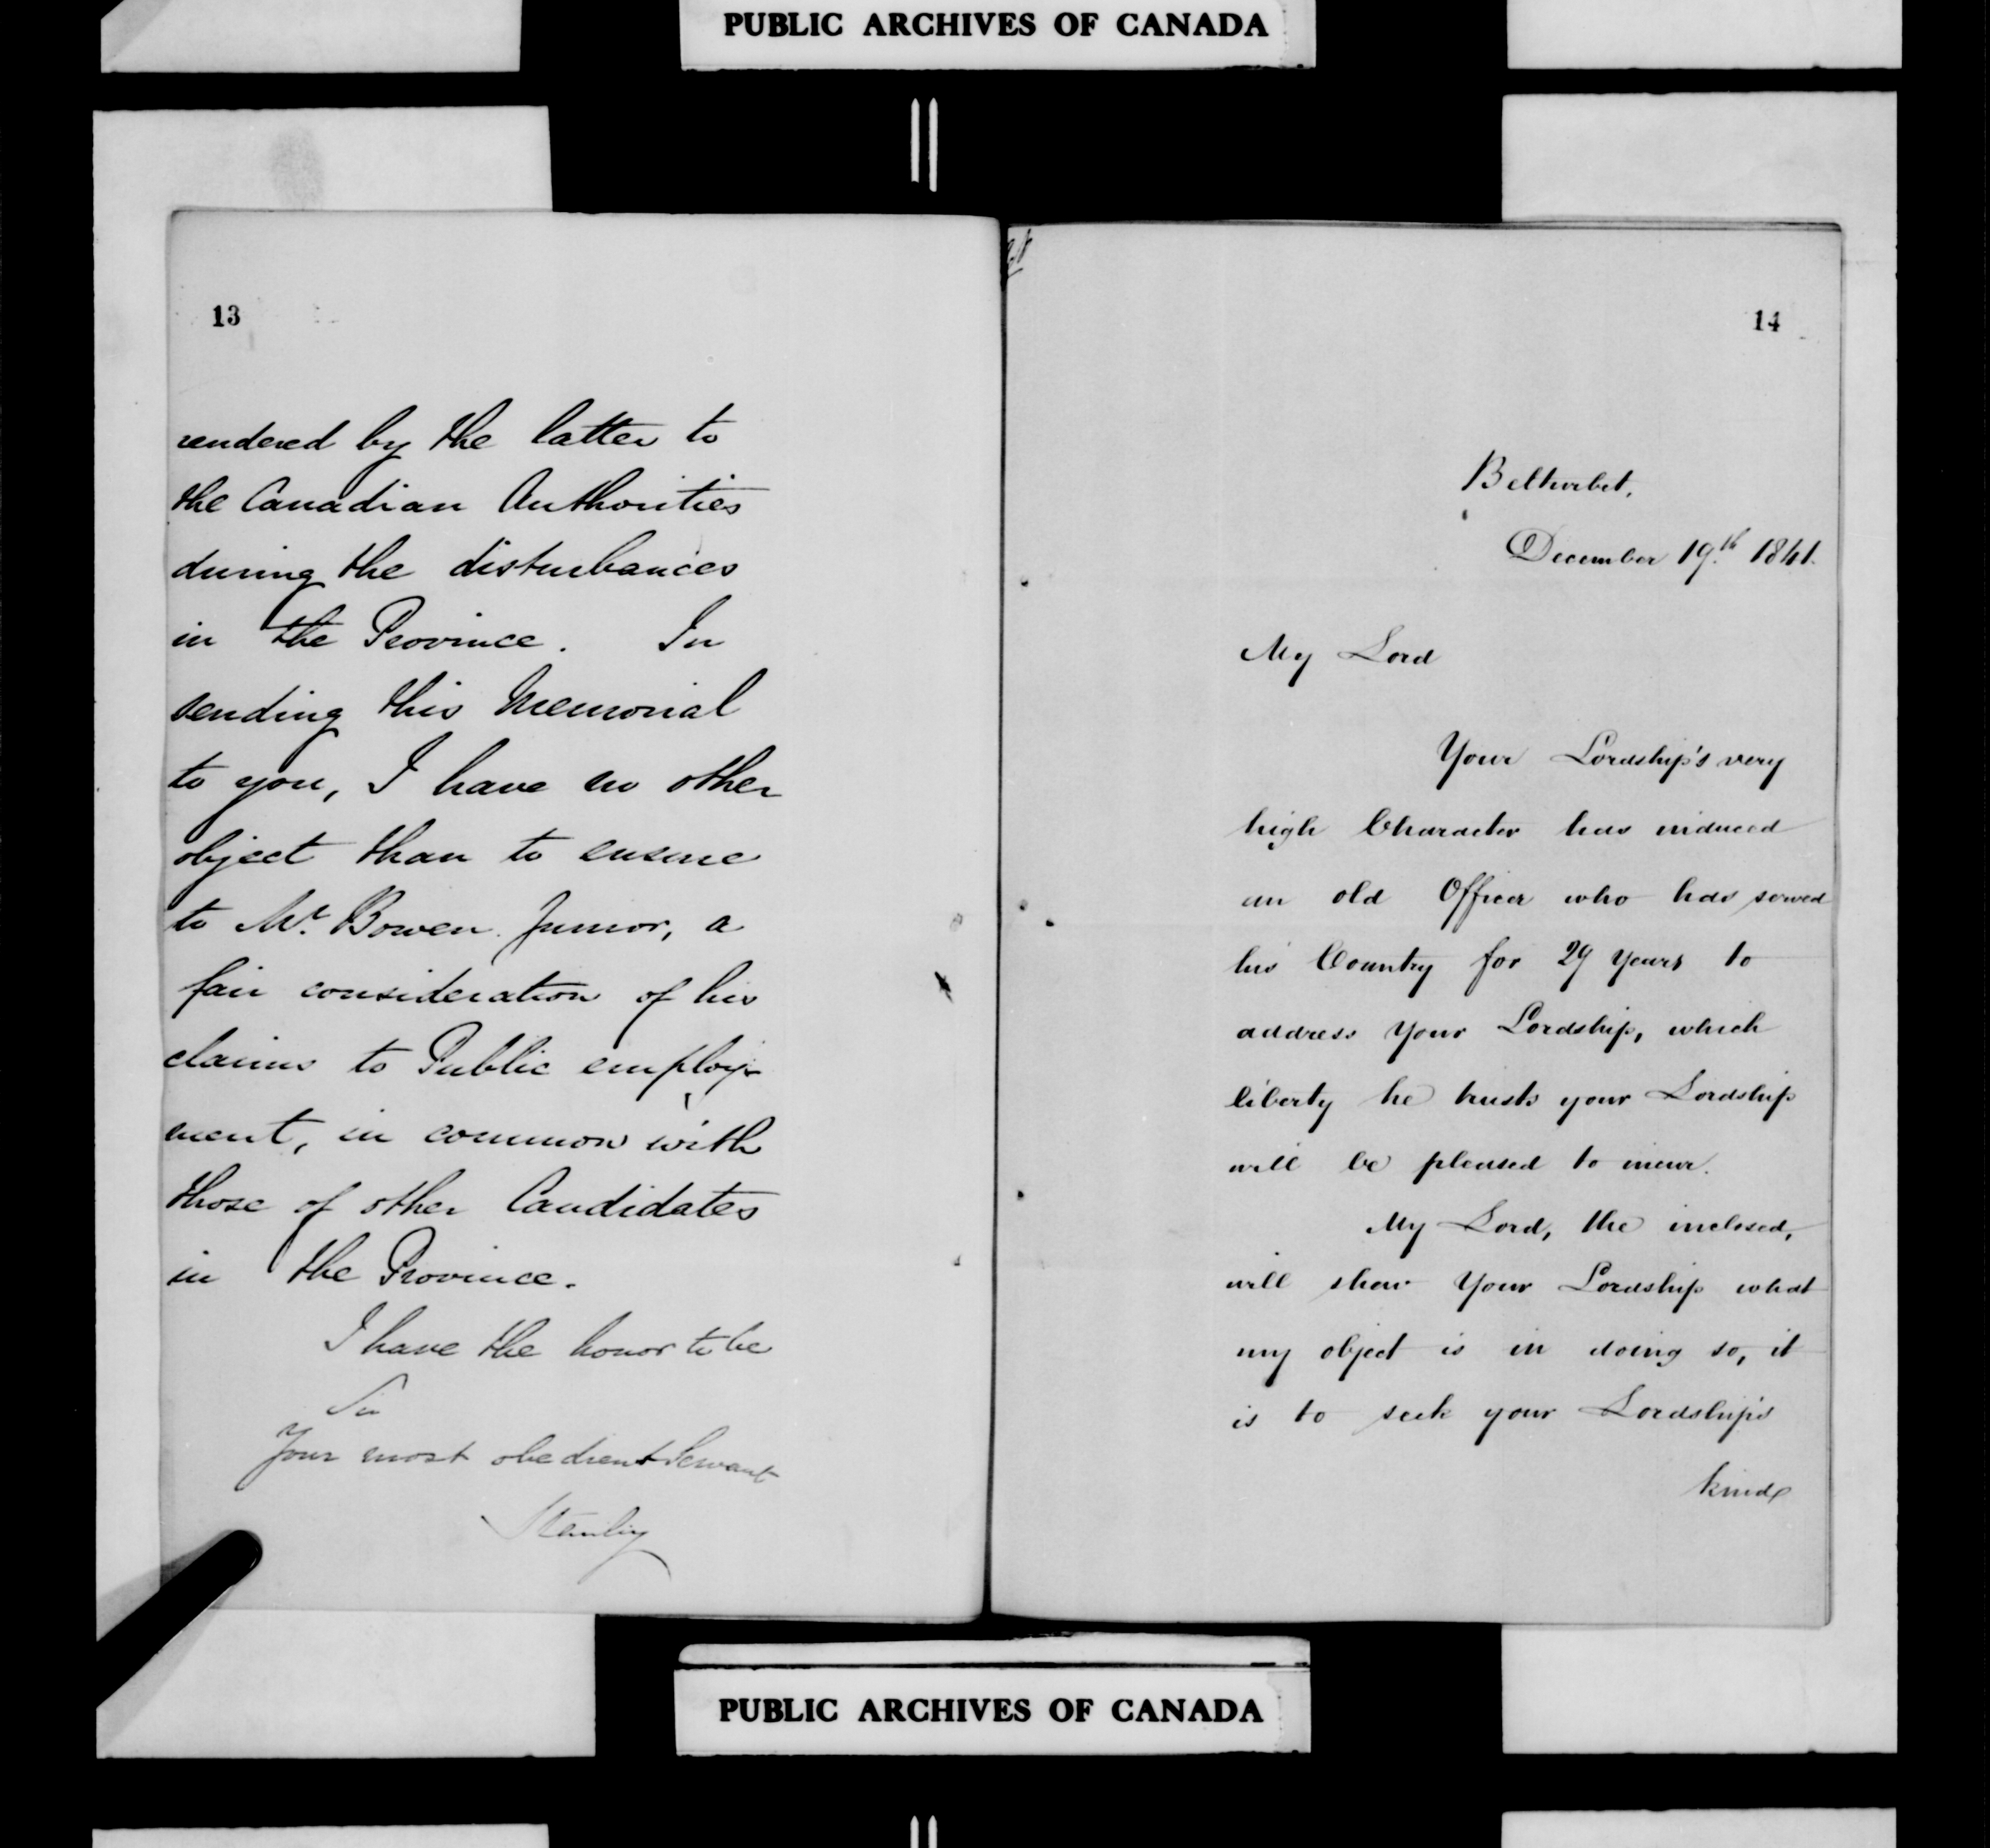 PUBLIC ARCHIVES OF CANADA
13
rendered by the latter to
the Canadian Authorities
during the disturbances
in the Province. In
sending this Memorial
to you, I have no other
object than to ensure
to Mr. Bowen Junior, a
fair consideration of his
claims to Public employ-
ment, in common with
those of other Candidates
in the Province.
I have the honor to be
Sir
Your most obedient Servant
Stanley
14
Belturbet,
December 19th. 1841.
My Lord
Your Lordship's very
high Character has induced
an old Officer who has served
his Country for 29 years to
address Your Lordship, which
liberty he trusts your Lordship
will be pleased to
My Lord, the inclosed,
will show Your Lordship what
my object is in doing so, it
is to seek your Lordship's
kind
PUBLIC ARCHIVES OF CANADA